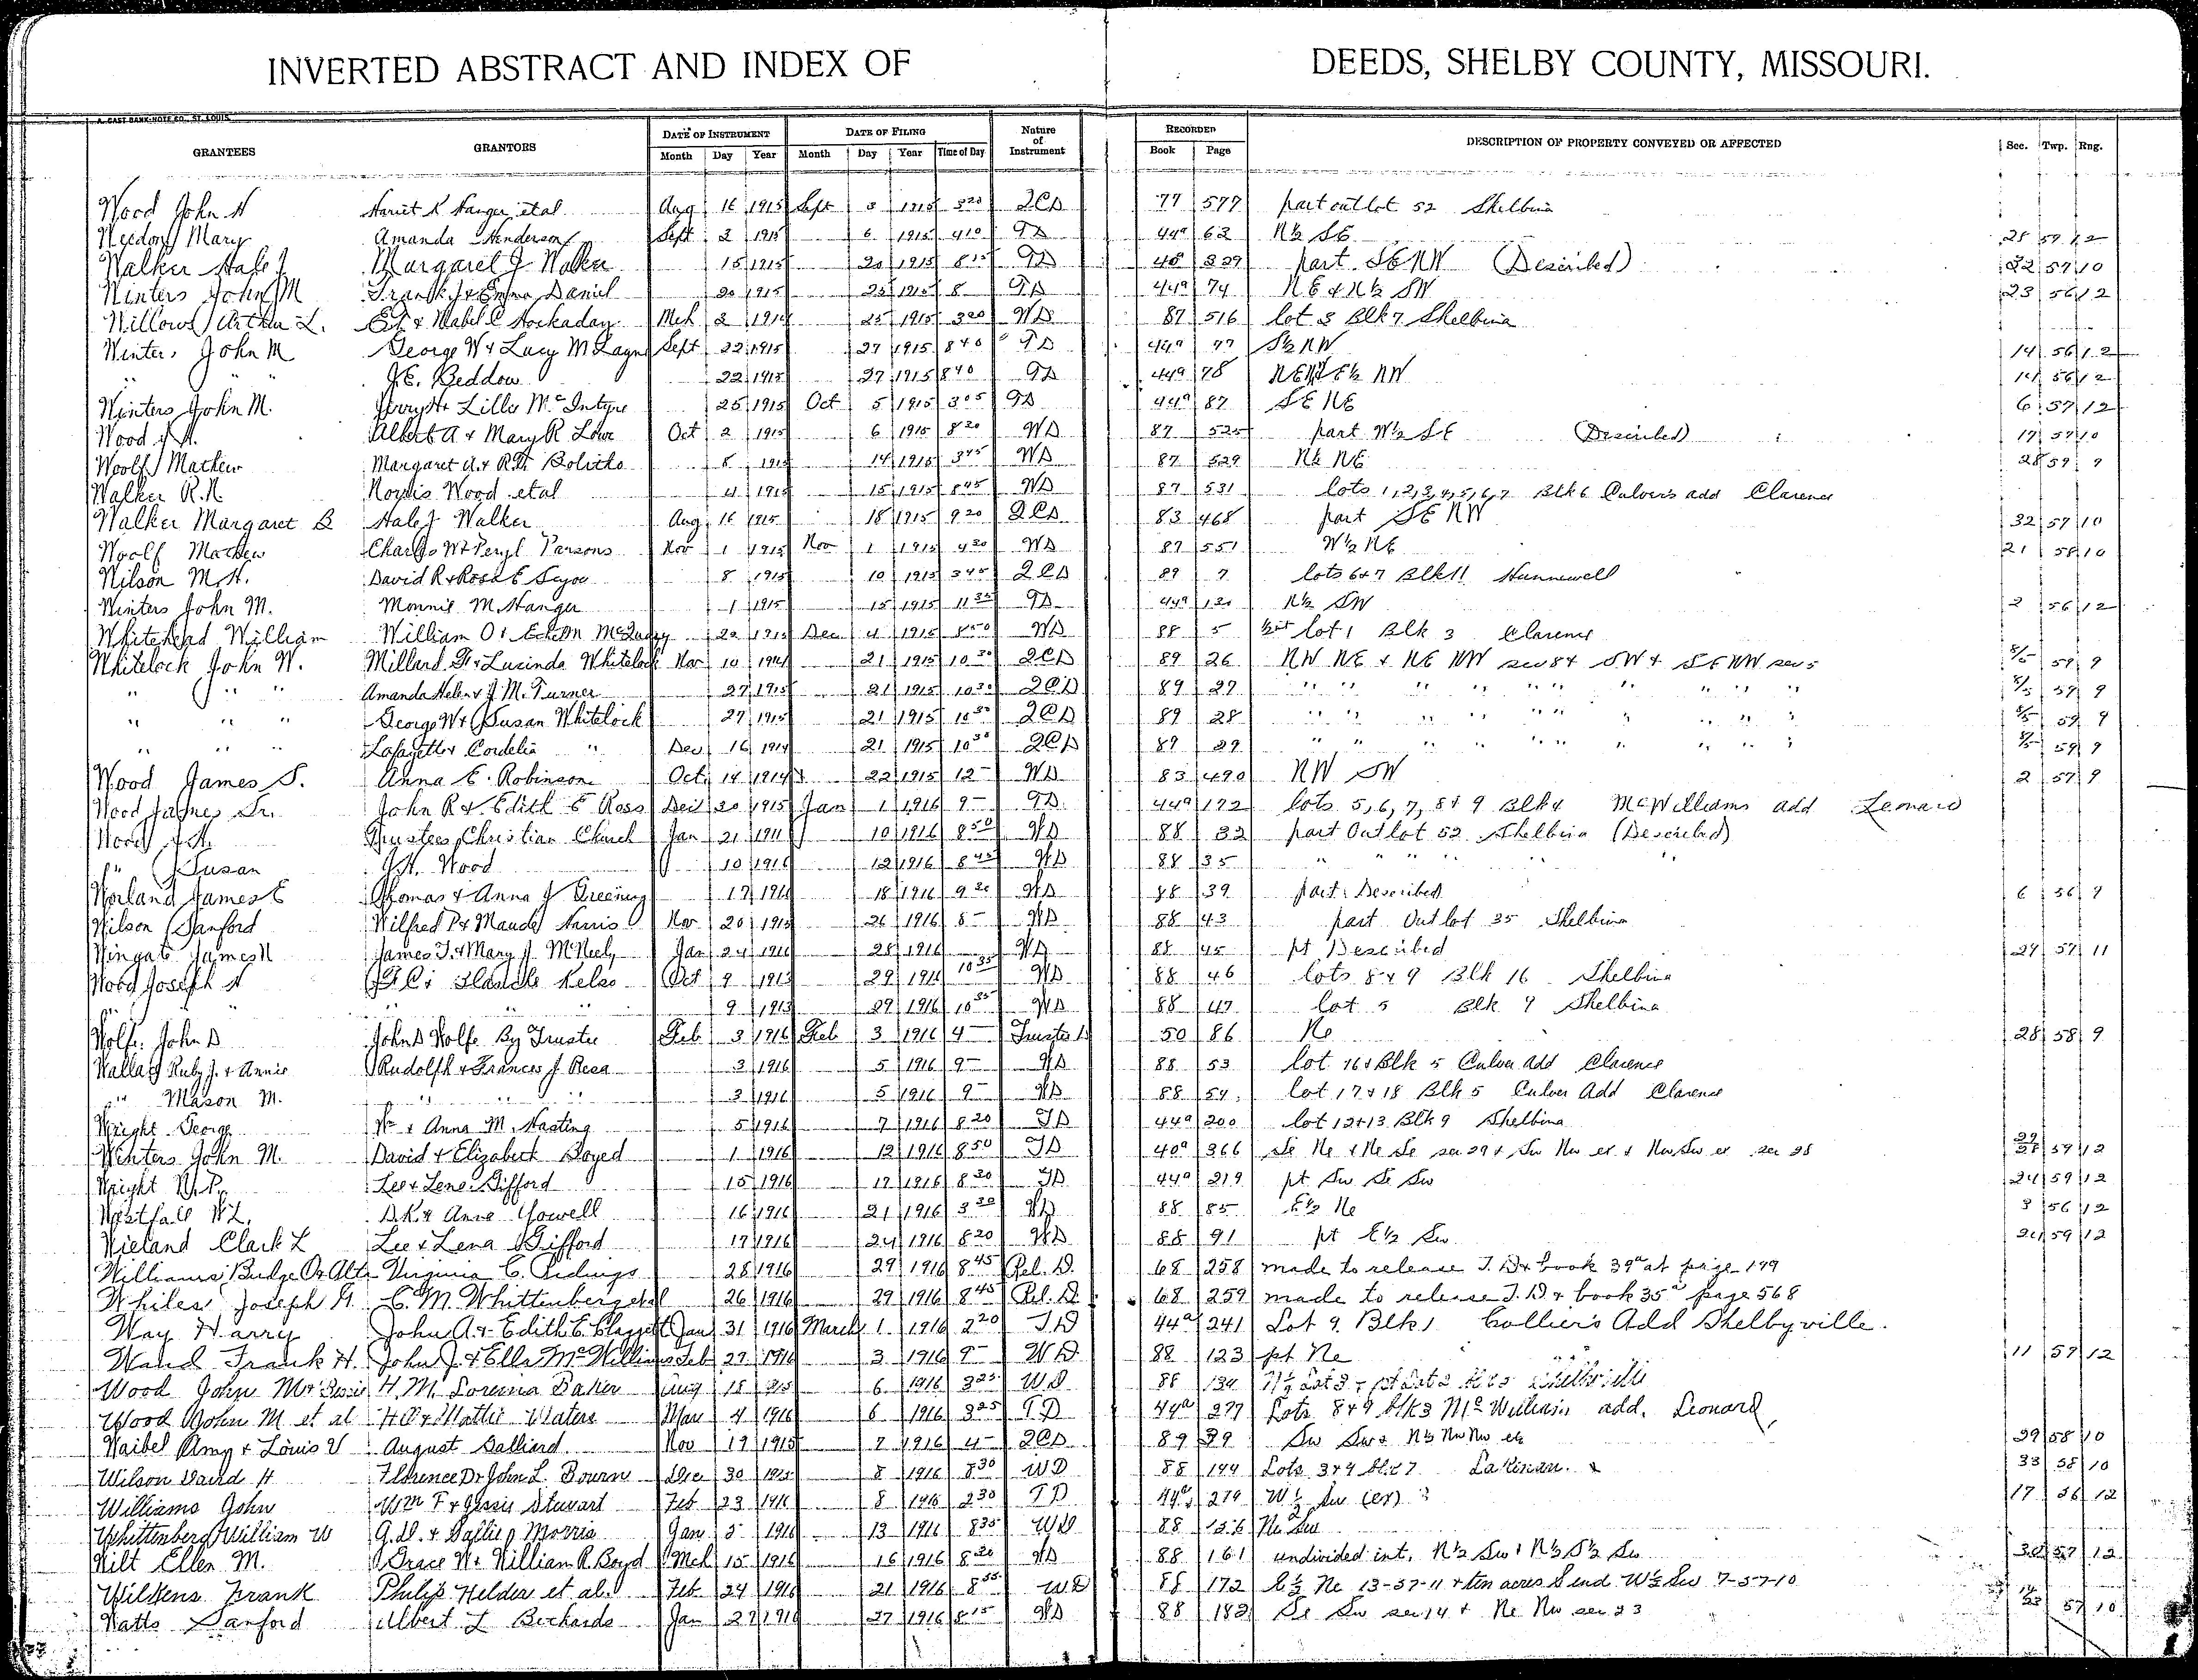 INVERTED ABSTRACT AND INDEX OF DEEDS, SHELBY COUNTY, MISSOURI.
A. GAST BANK-NOTE CO., ST. LOUIS.
GRANTEES GRANTORS DATE OF INSTRUMENT DATE OF FILING Nature of Instrument RECORDED DESCRIPTION OF PROPERTY CONVEYED OR AFFECTED Sec. Twp. Rng.
Month Day Year Month Day Year Time of Day Book Page
Wood John H Harriet K Hanger et al Aug 16 1915 Sept 3 1915 8 20 QCD 77 577 part outlot 52 Shelbina
Mary Amanda Henderson Sept 2 1915 6 1915 4 10 TD 44a 62 N½ SE 25 57 12
Walker Hale J Margaret J Walker 15 1915 20 1915 8 15 TD 48 329 part SE NW (Described) 32 57 10
Winters John M Frank J & Emma Daniel 20 1915 25 1915 8 TD 44a 74 NE & N½ SW 23 56 12
Willows Arthur L. & Mabel C Hockaday Mch 2 1914 25 1915 3 20 WD 87 516 lot 3 Blk 7 Shelbina
Winters John M George W & Lucy M Sept 22 1915 27 1915 8 40 TD 44a 77 S½ NW 14 56 12
" " J.E. Beddow 22 1915 27 1915 8 40 TD 44a 78 NW 14 56 12
Winters John M. Lilly McIntyre 25 1915 Oct 5 1915 3 05 TD 44a 87 SE NE 6 57 12
Wood J.H. Albert A & Mary R Lowe Oct 2 1915 6 1915 8 20 WD 87 525 part W½ SE (Described) 17 57 10
Woolf Mathew Margaret A. & R.H. Bolitho 8 1915 14 1915 3 45 WD 87 529 N½ NE 28 59 9
Walker R.N. Norris Wood et al 4 1915 15 1915 8 45 WD 87 531 lots 1,2,3,4,5,6,7 Blk 6 Culver's add Clarence
Walker Margaret B Hale J Walker Aug 16 1915 18 1915 9 20 QCD 83 468 part SE NW 32 57 10
Woolf Mathew Charles W & Peryl Parsons Nov 1 1915 Nov 1 1915 4 30 WD 87 551 W½ NE 21 58 10
Wilson M.H. David R & Rosa E 8 1915 10 1915 3 45 QCD 89 7 lots 6 & 7 Blk 11 Hunnewell
Winters John M. Monnie M. Hanger 1 1915 15 1915 11 35 TD 44a 120 N½ SW 2 56 12
Whitehead William William O & 20 1915 Dec 4 1915 8 50 WD 88 5 lot 1 Blk 3 Clarence
Whitelock John W. Millard F. & Lucinda Whitelock Nov 10 1914 21 1915 10 30 QCD 89 26 NW NE & NE NW sec 8 & SW & SE NW sec 5 8/5 59 9
" " " Amanda Helen & J.M. Turner 27 1915 21 1915 10 30 QCD 89 27 " " " " " " " " " 8/5 59 9
" " " George W & Susan Whitelock 27 1915 21 1915 10 30 QCD 89 28 " " " " " " " " " 8/5 59 9
" " " Lafayette & Cordelia " Dec 16 1914 21 1915 10 30 QCD 89 29 " " " " " " " " " 8/5 59 9
Wood James S. Anna E. Robinson Oct 14 1914 22 1915 12 - WD 83 490 NW SW 2 57 9
Wood James Sr. John R & Edith E Ross Dec 20 1915 Jan 1 1916 9 - TD 44a 172 lots 5, 6, 7, 8 & 9 Blk 4 McWilliams add Leonard
Wood J.H. Trustees Christian Church Jan 21 1911 10 1916 8 50 WD 88 32 part Outlot 52 Shelbina (Described)
" Susan J.H. Wood 10 1916 12 1916 8 45 WD 88 35 " " " " "
Worland James E Thomas & Anna J Greening 17 1916 18 1916 9 20 WD 88 39 part Described 6 56 9
Wilson Sanford Wilfred P & Maude Harris Nov 20 1915 26 1916 8 - WD 88 43 part Outlot 35 Shelbina
Wingate James N James T. & Mary J. McNeely Jan 24 1916 28 1916 WD 88 45 pt Described 27 57 11
Wood Joseph H Kelso Oct 9 1913 29 1916 10 35 WD 88 46 lots 8 & 9 Blk 16 Shelbina
" " " " 9 1913 29 1916 10 35 WD 88 47 lot 5 Blk 9 Shelbina
Wolfe John D John D Wolfe By Trustee Feb 3 1916 Feb 3 1916 4 - Trustee D 50 86 Ne 28 58 9
Wallace Ruby J. & Annie Rudolph & Frances J. Reea 3 1916 5 1916 9 - WD 88 53 lot 16 & Blk 5 Culver add Clarence
" Mason M. " " " 3 1916 5 1916 9 - WD 88 54 lot 17 & 18 Blk 5 Culver Add Clarence
Wright George Wm & Anna M. Hasting 5 1916 7 1916 8 20 TD 44a 200 lot 12 & 13 Blk 9 Shelbina
Winters John M. David & Elizabeth Boyed 1 1916 12 1916 8 50 TD 40a 366 Se Ne & Ne Se sec 29 & Sw Nw ex & Nw Sw ex sec 28 29/28 59 12
Wright W.P. Lee & Lena Gifford 15 1916 17 1916 8 20 TD 44a 219 pt Sw Se Sw 24 59 12
Westfall W.L. D.K. & Anna Yowell 16 1916 21 1916 3 30 WD 88 85 E½ Ne 3 56 12
Wieland Clark L Lee & Lena Gifford 17 1916 24 1916 8 20 WD 88 91 pt E½ Sw 24 59 12
Williams Budge Or Alta Virginia C. Ridings 28 1916 29 1916 8 45 Rel. D. 68 258 made to release T.D & book 39a at page 199
Whiles Joseph H. E.M. Whittenberg et al 26 1916 29 1916 8 45 Rel. D 68 259 made to release T.D & book 35a page 568
Way Harry John A. & Edith E. Claggett Jan 31 1916 March 1 1916 2 20 TD 44a 241 Lot 9 Blk 1 Collier's Add Shelbyville.
Wand Frank H. John J. & Ella McWilliams Feb 29 1916 3 1916 9 - WD 88 123 pt Ne 11 57 12
Wood John M & Bessie H.M. Lorenia Baker Aug 18 1915 6 1916 3 25 WD 88 134 Shelbyville
Wood John M et al H.O & Mattie Waters Mar 4 1916 6 1916 3 25 TD 44a 277 Lots 8 & 9 blk 3 McWilliams add. Leonard
Waibel Amp & Louis V August Galliard Nov 19 1915 7 1916 4 - QCD 89 39 Sw Sw & N½ Nw Nw etc 29 58 10
Wilson David H Florence D & John L. Bourn Dec 30 1915 8 1916 8 30 WD 88 144 Lots 3 & 4 blk 7 Lakenan. 33 58 10
Williams John Wm F & Jessie Stuvart Feb 23 1916 8 1916 2 30 TD 44a 279 W½ Sw (ex) 17 56 12
Whittenberg William W G.D. & Sallie Morris Jan 3 1916 13 1916 8 35 WD 88 156 Ne Sw
Wilt Ellen M. Grace W & William R Boyd Mch 15 1916 16 1916 8 20 WD 88 161 undivided int. N½ Sw & N½ S½ Sw 30 57 12
Wilkens Frank Philip Helder et al. Feb 24 1916 21 1916 8 35 WD 88 172 E½ Ne 13-57-11 & ten acres S end W½ Sw 7-57-10
Watts Sanford Albert L Bechards Jan 27 1916 27 1916 8 15 WD 88 182 Se Sw sec 14 & Ne Nw sec 23 14/23 57 10